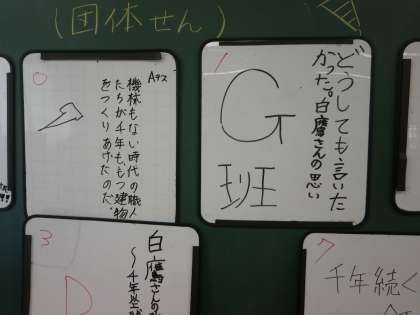 (団体せん)
0
機械もない時代の職人
たちが千年も、もつ建物
をつくりあげたのだ。
1
どうしても言いた
かった。白鷹さんの思い
G
班
3
白鷹さんの
〜千年
D
7
千年続く